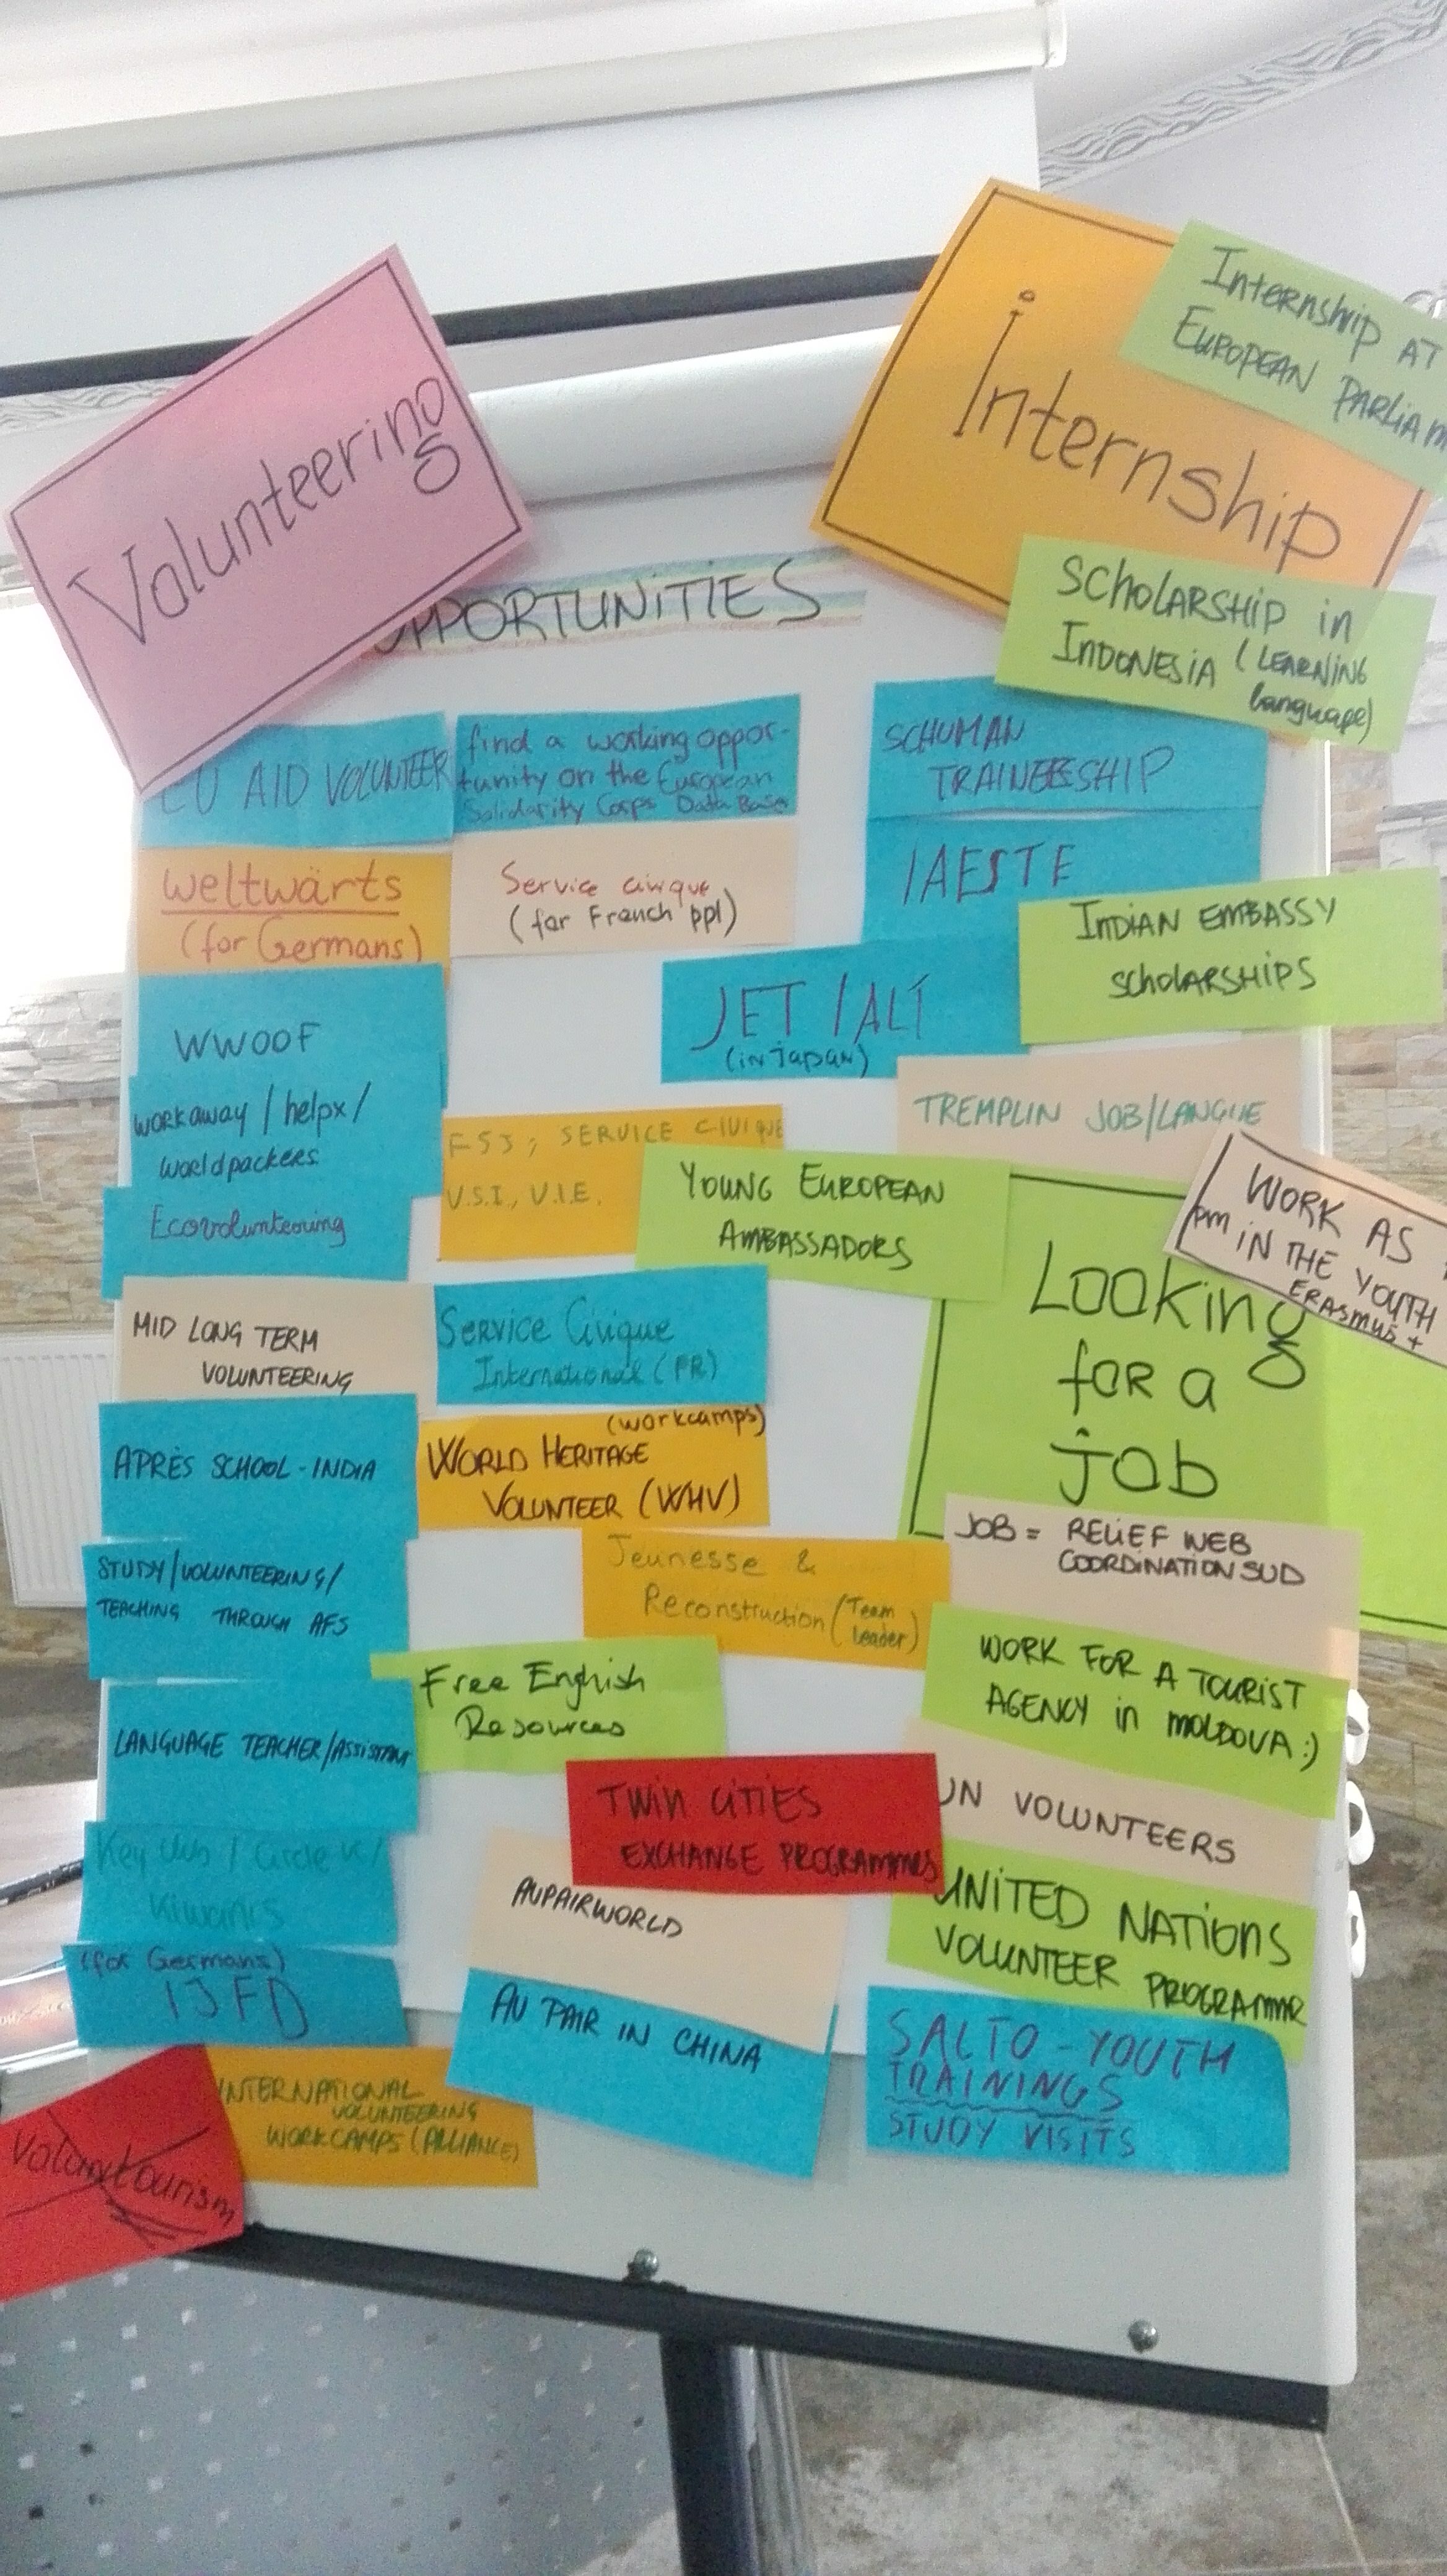 Volunteering
internship
Internship AT
EUROPEAN PARLIAM
OPPORTUNITIES
SCHOLARSHIP in
INDONESIA (LEARNING
language)
EU AID VOLUNTEER
find a working oppor-
tunity on the European
Solidarity Corps Data Base
SCHUMAN
TRAINEESHIP
weltwärts
(for Germans)
Service civique
(for French ppl)
IAESTE
INDIAN EMBASSY
SCHOLARSHIPS
WWOOF
JET / ALT
(in Japan)
workaway / helpx /
worldpackers
FSJ, SERVICE CIVIQUE
V.S.I., V.I.E.
TREMPLIN JOB/LANGUE
Ecovolunteering
YOUNG EUROPEAN
AMBASSADORS
WORK AS
pm IN THE YOUTH
ERASMUS +
Looking
for a
job
MID LONG TERM
VOLUNTEERING
Service Civique
International (FR)
APRÈS SCHOOL - INDIA
(workcamps)
WORLD HERITAGE
VOLUNTEER (WHV)
JOB = RELIEF WEB
COORDINATION SUD
STUDY/VOLUNTEERING/
TEACHING THROUGH AFS
Jeunesse &
Reconstruction (Team
leader)
WORK FOR A TOURIST
AGENCY in MOLDOVA :)
Free English
Resources
LANGUAGE TEACHER/ASSISTANT
TWIN CITIES
EXCHANGE PROGRAMMES
UN VOLUNTEERS
Key Club / Circle K /
Kiwanis
AUPAIRWORLD
UNITED NATIONS
VOLUNTEER PROGRAMME
(for Germans)
IJFD
AU PAIR IN CHINA
SALTO - YOUTH
TRAININGS
STUDY VISITS
INTERNATIONAL
VOLUNTEERING
WORKCAMPS (ALLIANCE)
Voluntourism